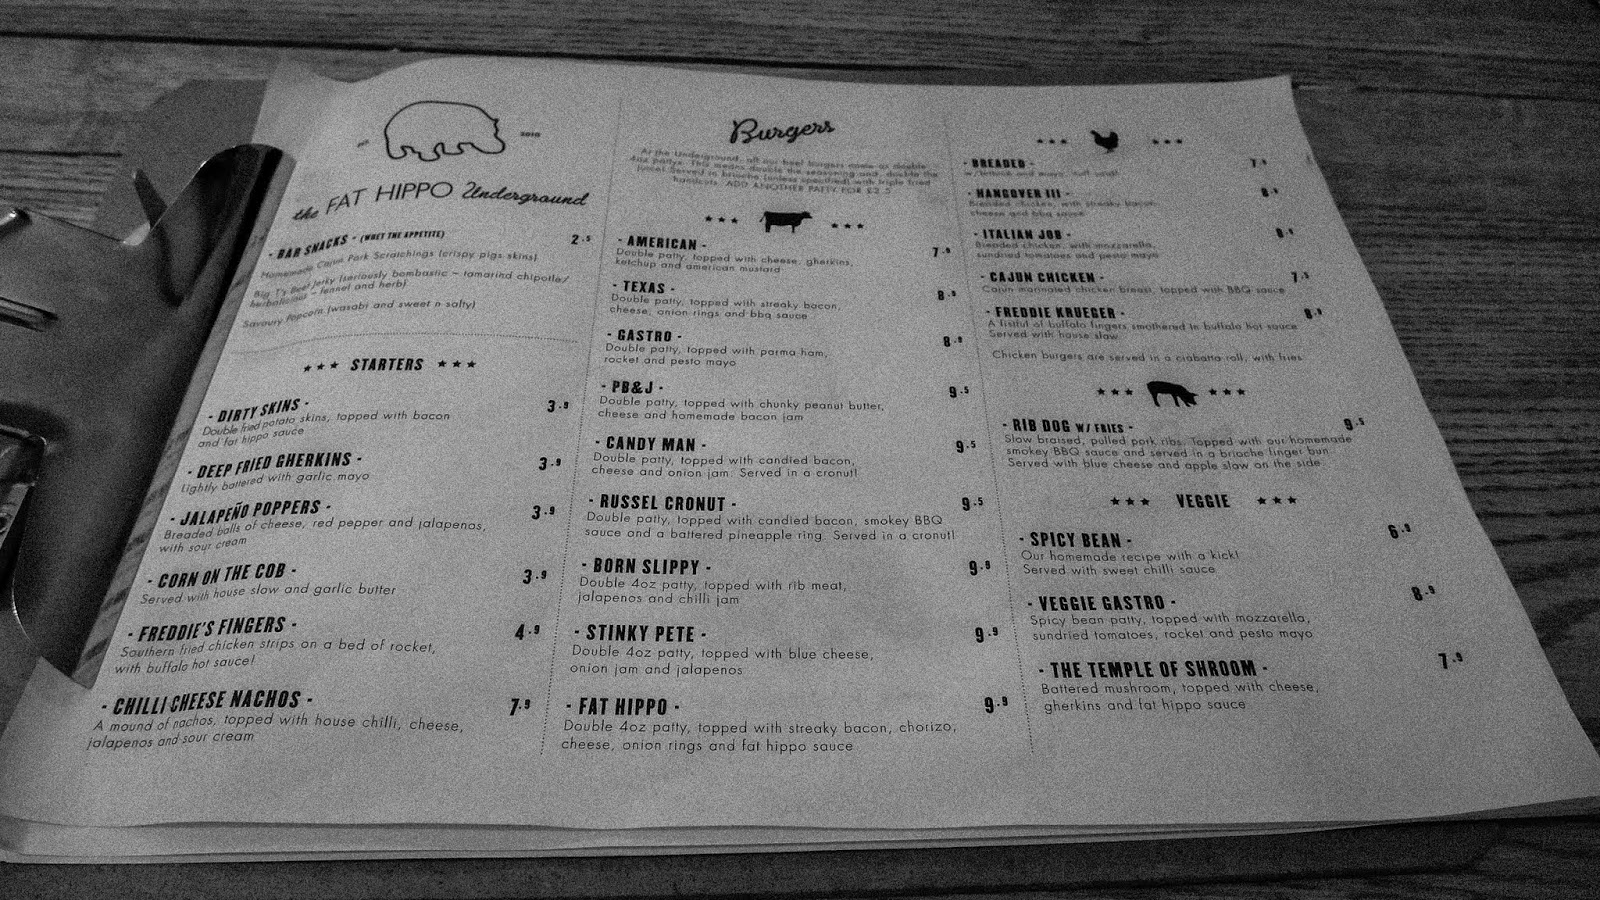 2010
the FAT HIPPO Underground
- BAR SNACKS - (WHET THE APPETITE) 2.5
Homemade Cajun Pork Scratchings (crispy pigs skins)
Big T's Beef Jerky (seriously bombastic ~ tamarind chipotle/
herbalicious ~ fennel and herb)
Savoury Popcorn (wasabi and sweet n salty)
*** STARTERS ***
- DIRTY SKINS - 3.9
Double fried potato skins, topped with bacon
and fat hippo sauce
- DEEP FRIED GHERKINS - 3.9
Lightly battered with garlic mayo
- JALAPEÑO POPPERS - 3.9
Breaded balls of cheese, red pepper and jalapenos,
with sour cream
- CORN ON THE COB - 3.9
Served with house slaw and garlic butter
- FREDDIE'S FINGERS - 4.9
Southern fried chicken strips on a bed of rocket,
with buffalo hot sauce!
- CHILLI CHEESE NACHOS - 7.9
A mound of nachos, topped with house chilli, cheese,
jalapenos and sour cream
Burgers
At the Underground, all our beef burgers come as double
4oz pattys. This means double the seasoning and, double the
Served in brioche (unless specified) with triple fried
handcuts. ADD ANOTHER PATTY FOR £2.5
- AMERICAN - 7.9
Double patty, topped with cheese, gherkins,
ketchup and american mustard
- TEXAS - 8.5
Double patty, topped with streaky bacon,
cheese, onion rings and bbq sauce
- GASTRO - 8.9
Double patty, topped with parma ham,
rocket and pesto mayo
- PB&J - 9.5
Double patty, topped with chunky peanut butter,
cheese and homemade bacon jam
- CANDY MAN - 9.5
Double patty, topped with candied bacon,
cheese and onion jam. Served in a cronut!
- RUSSEL CRONUT - 9.5
Double patty, topped with candied bacon, smokey BBQ
sauce and a battered pineapple ring. Served in a cronut!
- BORN SLIPPY - 9.9
Double 4oz patty, topped with rib meat,
jalapenos and chilli jam
- STINKY PETE - 9.9
Double 4oz patty, topped with blue cheese,
onion jam and jalapenos
- FAT HIPPO - 9.9
Double 4oz patty, topped with streaky bacon, chorizo,
cheese, onion rings and fat hippo sauce
- BREADED -
w/lettuce and mayo,
- HANGOVER III -
Breaded chicken, with streaky bacon,
cheese and bbq sauce
- ITALIAN JOB -
Breaded chicken, with mozzarella,
sundried tomatoes and pesto mayo
- CAJUN CHICKEN - 7.5
Cajun marinated chicken breast, topped with BBQ sauce
- FREDDIE KRUEGER - 8.9
A fistful of buffalo fingers smothered in buffalo hot sauce
Served with house slaw
Chicken burgers are served in a ciabatta roll, with fries
- RIB DOG W/ FRIES - 9.5
Slow braised, pulled pork ribs. Topped with our homemade
smokey BBQ sauce and served in a brioche finger bun.
Served with blue cheese and apple slaw on the side
*** VEGGIE ***
- SPICY BEAN - 6.9
Our homemade recipe with a kick!
Served with sweet chilli sauce
- VEGGIE GASTRO - 8.9
Spicy bean patty, topped with mozzarella,
sundried tomatoes, rocket and pesto mayo
- THE TEMPLE OF SHROOM - 7.9
Battered mushroom, topped with cheese,
gherkins and fat hippo sauce